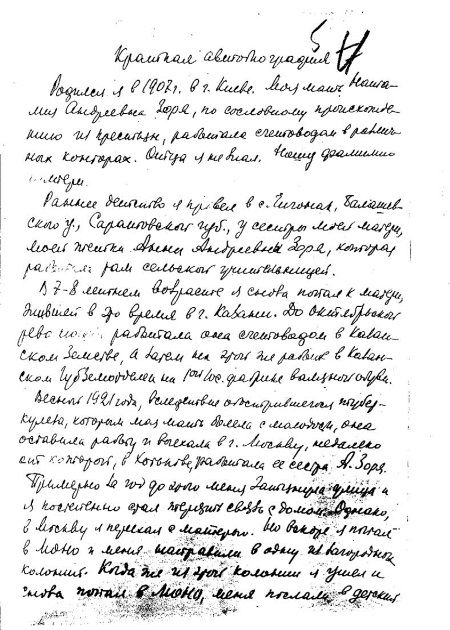 5
Краткая автобиография
Родился я в 1907 г. в г. Киеве. Моя мать, Ната-
лия Андреевна Зоря, по сословному происхожде-
нию из крестьян, работала счетоводом в различ-
ных конторах. Отца я не знал. Ношу фамилию
матери.
Раннее детство я провел в с. Чиганак, Балашов-
ского у., Саратовской губ., у сестры моей матери,
моей тетки Анны Андреевны Зоря, которая
работала там сельской учительницей.
В 7-8 летнем возрасте я снова попал к матери,
жившей в это время в г. Казани. До октябрьской
революции работала она счетоводом в Казан-
ском Земстве, а затем на этой же работе в Казан-
ском Губземотделе и на гос. фабрике валяной обуви.
Весной 1921 года, вследствие обострившегося тубер-
кулеза, которым моя мать болела с молодости, она
оставила работу и выехала в г. Москву, недалеко
от которой, в Хотькове, работала ее сестра А. Зоря.
Примерно за год до этого меня затянула улица и
я постепенно стал терять связь с домом. Однако,
в Москву я переехал с матерью. Но вскоре я попал
в МОНО и меня направили в одну из загородных
колоний. Когда же из этой колонии я ушел и
снова попал в МОНО, меня послали в детский